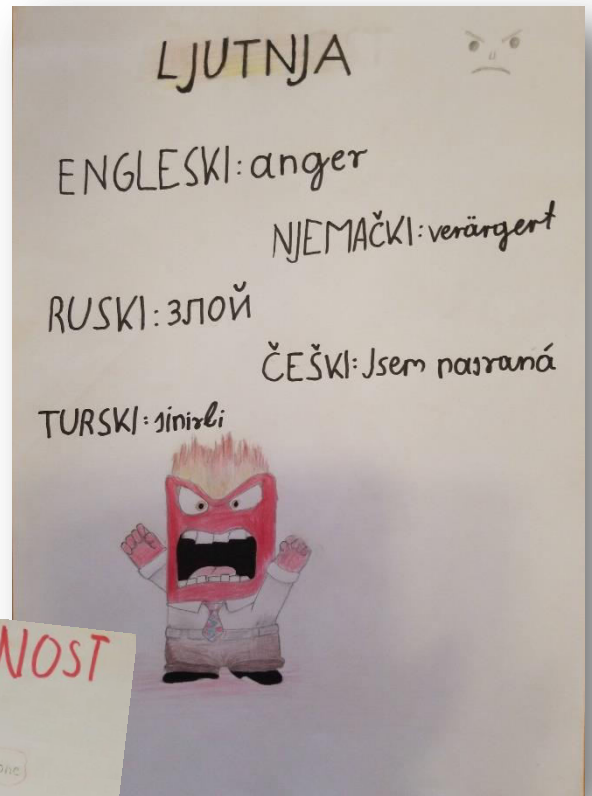 LJUTNJA
ENGLESKI: anger
NJEMAČKI: verärgert
RUSKI: злой
ČEŠKI: Jsem nasraná
TURSKI: sinirli
NOST